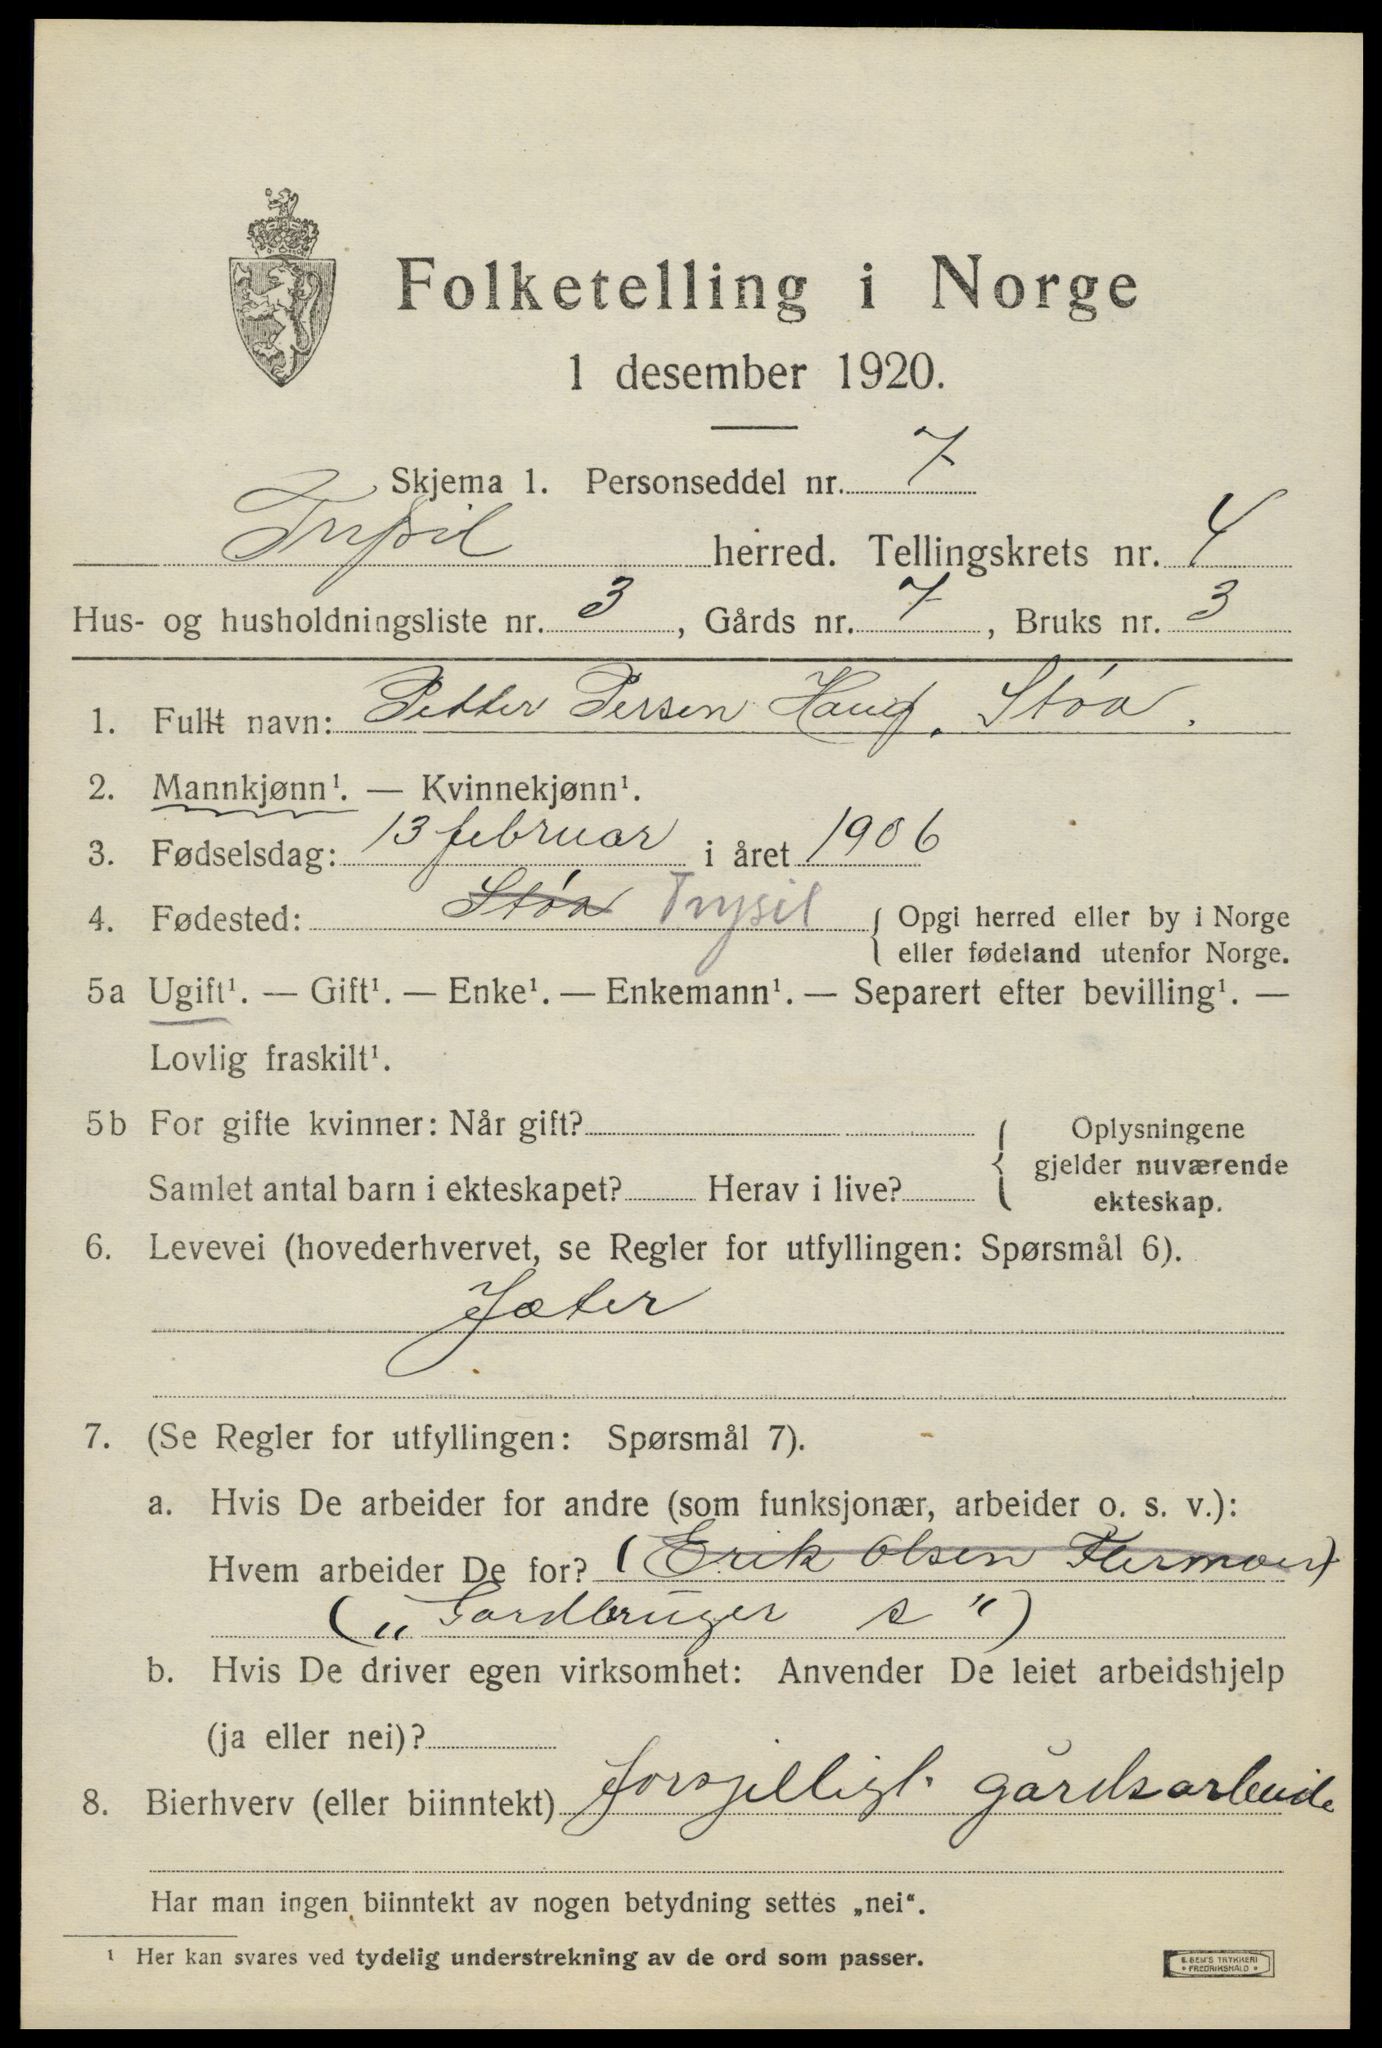 Folketelling i Norge
1 desember 1920.
Skjema 1. Personseddel nr. 7
Trysil herred. Tellingskrets nr. 4
Hus- og husholdningsliste nr. 3, Gårds nr. 7, Bruks nr. 3
1. Fullt navn: Petter Persen Haug. Støa.
2. Mannkjønn¹. — Kvinnekjønn¹.
3. Fødselsdag: 13 februar i året 1906
4. Fødested: Støa Trysil { Opgi herred eller by i Norge
eller fødeland utenfor Norge.
5a Ugift¹. — Gift¹. — Enke¹. — Enkemann¹. — Separert efter bevilling¹. —
Lovlig fraskilt¹.
5b For gifte kvinner: Når gift? { Oplysningene
gjelder nuværende
Samlet antal barn i ekteskapet? Herav i live?
ekteskap.
6. Levevei (hovederhvervet, se Regler for utfyllingen: Spørsmål 6).
Jæter
7. (Se Regler for utfyllingen: Spørsmål 7).
a. Hvis De arbeider for andre (som funksjonær, arbeider o. s. v.):
Hvem arbeider De for? (Erik Olsen Flermoen)
(„Gardbruger s")
b. Hvis De driver egen virksomhet: Anvender De leiet arbeidshjelp
(ja eller nei)?
8. Bierhverv (eller biinntekt) forsjelligt gårdsarbeide
Har man ingen biinntekt av nogen betydning settes „nei“.
¹ Her kan svares ved tydelig understrekning av de ord som passer.
E. SEM'S TRYKKERI
• FREDRIKSHALD •